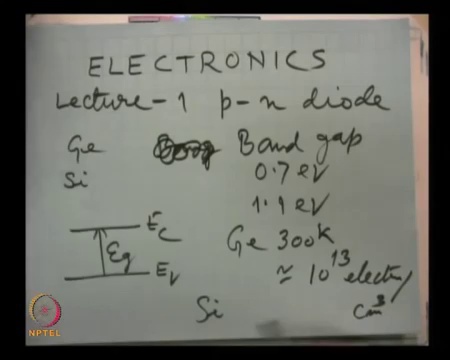 ELECTRONICS
Lecture-1 p-n diode
Ge Band gap
Si 0.7 eV
1.1 eV
Ec
Eg
Ev
Ge 300K
≃ 10^13 electrons/
cm^3
Si
NPTEL